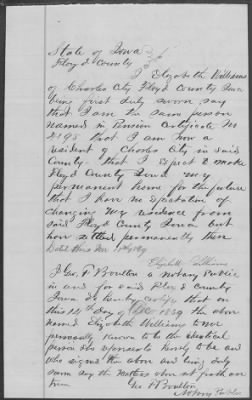 State of Iowa
Floyd County
I Elizabeth Williams
of Charles City Floyd County Iowa
being first duly sworn say
that I am the same person
named in Pension Certificate No
2895 that I am now a
resident of Charles City in said
County that I expect to make
Floyd County Iowa my
permanent home for the future
that I have no expectation of
changing my residence from
said Floyd County Iowa but
now settled permanently then
Elizabeth Williams
I Geo. F Boulton a notary Public
in and for said Floyd County
Iowa do hereby certify that on
this 14th Day of 1859 the above
named Elizabeth Williams to me
personally known to be the identical
person she represents herself to be and
who signed the above and being duly
sworn says the matters above set forth are
true
Geo F Boulton
Notary Public